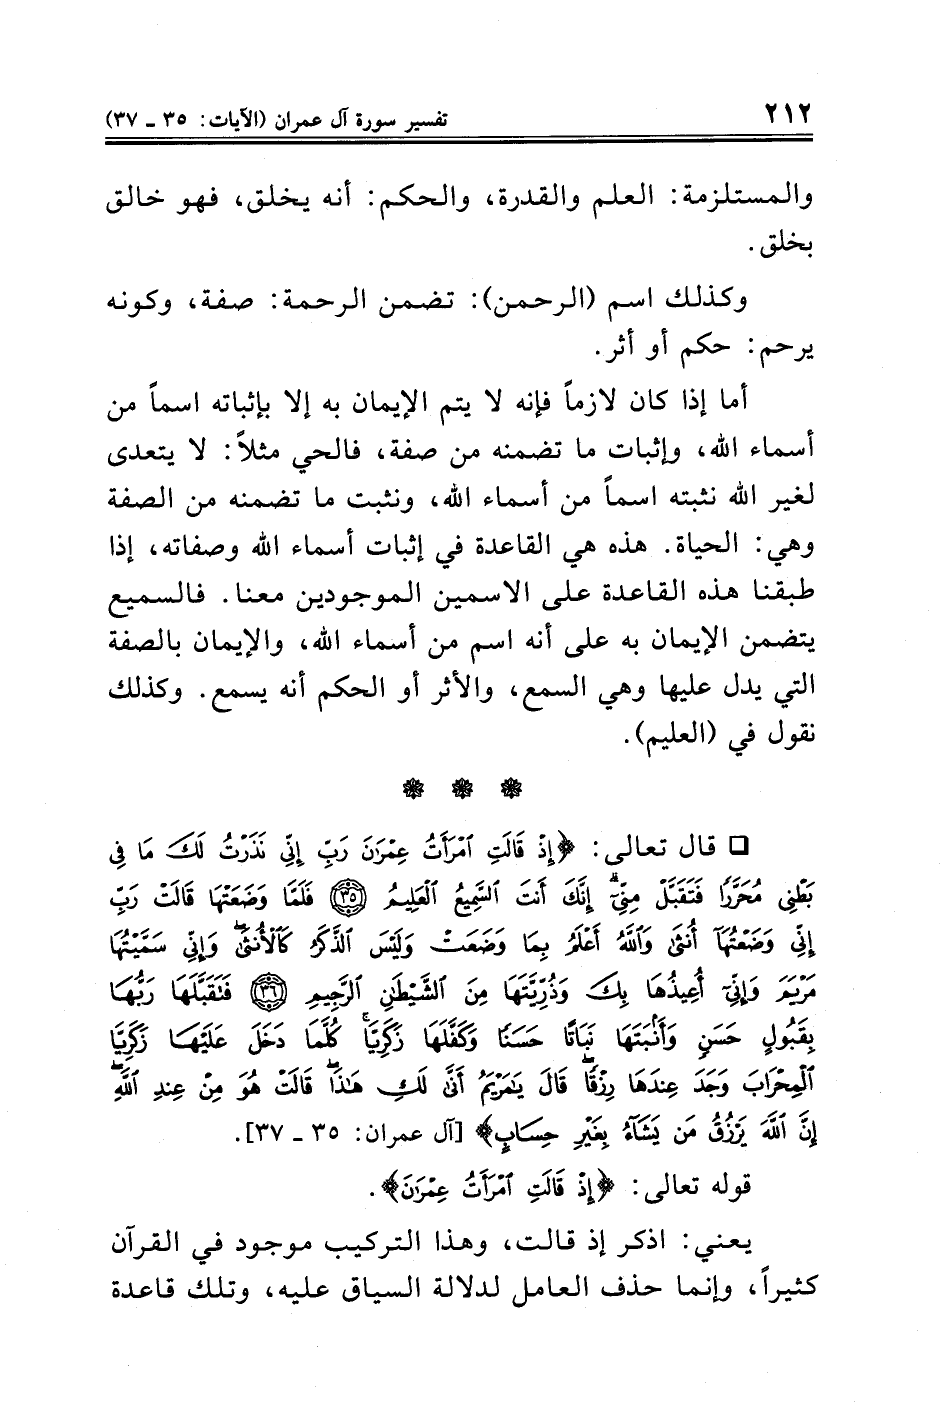 ٢١٢
تفسير سورة آل عمران (الآيات: ٣٥ ـ ٣٧)
والمستلزمة: العلم والقدرة، والحكم: أنه يخلق، فهو خالق
بخلق.
وكذلك اسم (الرحمن): تضمن الرحمة: صفة، وكونه
يرحم: حكم أو أثر.
أما إذا كان لازماً فإنه لا يتم الإيمان به إلا بإثباته اسماً من
أسماء الله، وإثبات ما تضمنه من صفة، فالحي مثلاً: لا يتعدى
لغير الله نثبته اسماً من أسماء الله، ونثبت ما تضمنه من الصفة
وهي: الحياة. هذه هي القاعدة في إثبات أسماء الله وصفاته، إذا
طبقنا هذه القاعدة على الاسمين الموجودين معنا. فالسميع
يتضمن الإيمان به على أنه اسم من أسماء الله، والإيمان بالصفة
التي يدل عليها وهي السمع، والأثر أو الحكم أنه يسمع. وكذلك
نقول في (العليم).
❋ ❋ ❋
❑ قال تعالى: ﴿إِذْ قَالَتِ ٱمْرَأَتُ عِمْرَٰنَ رَبِّ إِنِّي نَذَرْتُ لَكَ مَا فِي
بَطْنِي مُحَرَّرًا فَتَقَبَّلْ مِنِّيٓ ۖ إِنَّكَ أَنتَ ٱلسَّمِيعُ ٱلْعَلِيمُ (٣٥) فَلَمَّا وَضَعَتْهَا قَالَتْ رَبِّ
إِنِّي وَضَعْتُهَآ أُنثَىٰ وَٱللَّهُ أَعْلَمُ بِمَا وَضَعَتْ وَلَيْسَ ٱلذَّكَرُ كَٱلْأُنثَىٰ ۖ وَإِنِّي سَمَّيْتُهَا
مَرْيَمَ وَإِنِّيٓ أُعِيذُهَا بِكَ وَذُرِّيَّتَهَا مِنَ ٱلشَّيْطَٰنِ ٱلرَّجِيمِ (٣٦) فَتَقَبَّلَهَا رَبُّهَا
بِقَبُولٍ حَسَنٍ وَأَنۢبَتَهَا نَبَاتًا حَسَنًا وَكَفَّلَهَا زَكَرِيَّا ۖ كُلَّمَا دَخَلَ عَلَيْهَا زَكَرِيَّا
ٱلْمِحْرَابَ وَجَدَ عِندَهَا رِزْقًا ۖ قَالَ يَٰمَرْيَمُ أَنَّىٰ لَكِ هَٰذَا ۖ قَالَتْ هُوَ مِنْ عِندِ ٱللَّهِ ۖ
إِنَّ ٱللَّهَ يَرْزُقُ مَن يَشَآءُ بِغَيْرِ حِسَابٍ﴾ [آل عمران: ٣٥ ـ ٣٧].
قوله تعالى: ﴿إِذْ قَالَتِ ٱمْرَأَتُ عِمْرَٰنَ﴾.
يعني: اذكر إذ قالت، وهذا التركيب موجود في القرآن
كثيراً، وإنما حذف العامل لدلالة السياق عليه، وتلك قاعدة